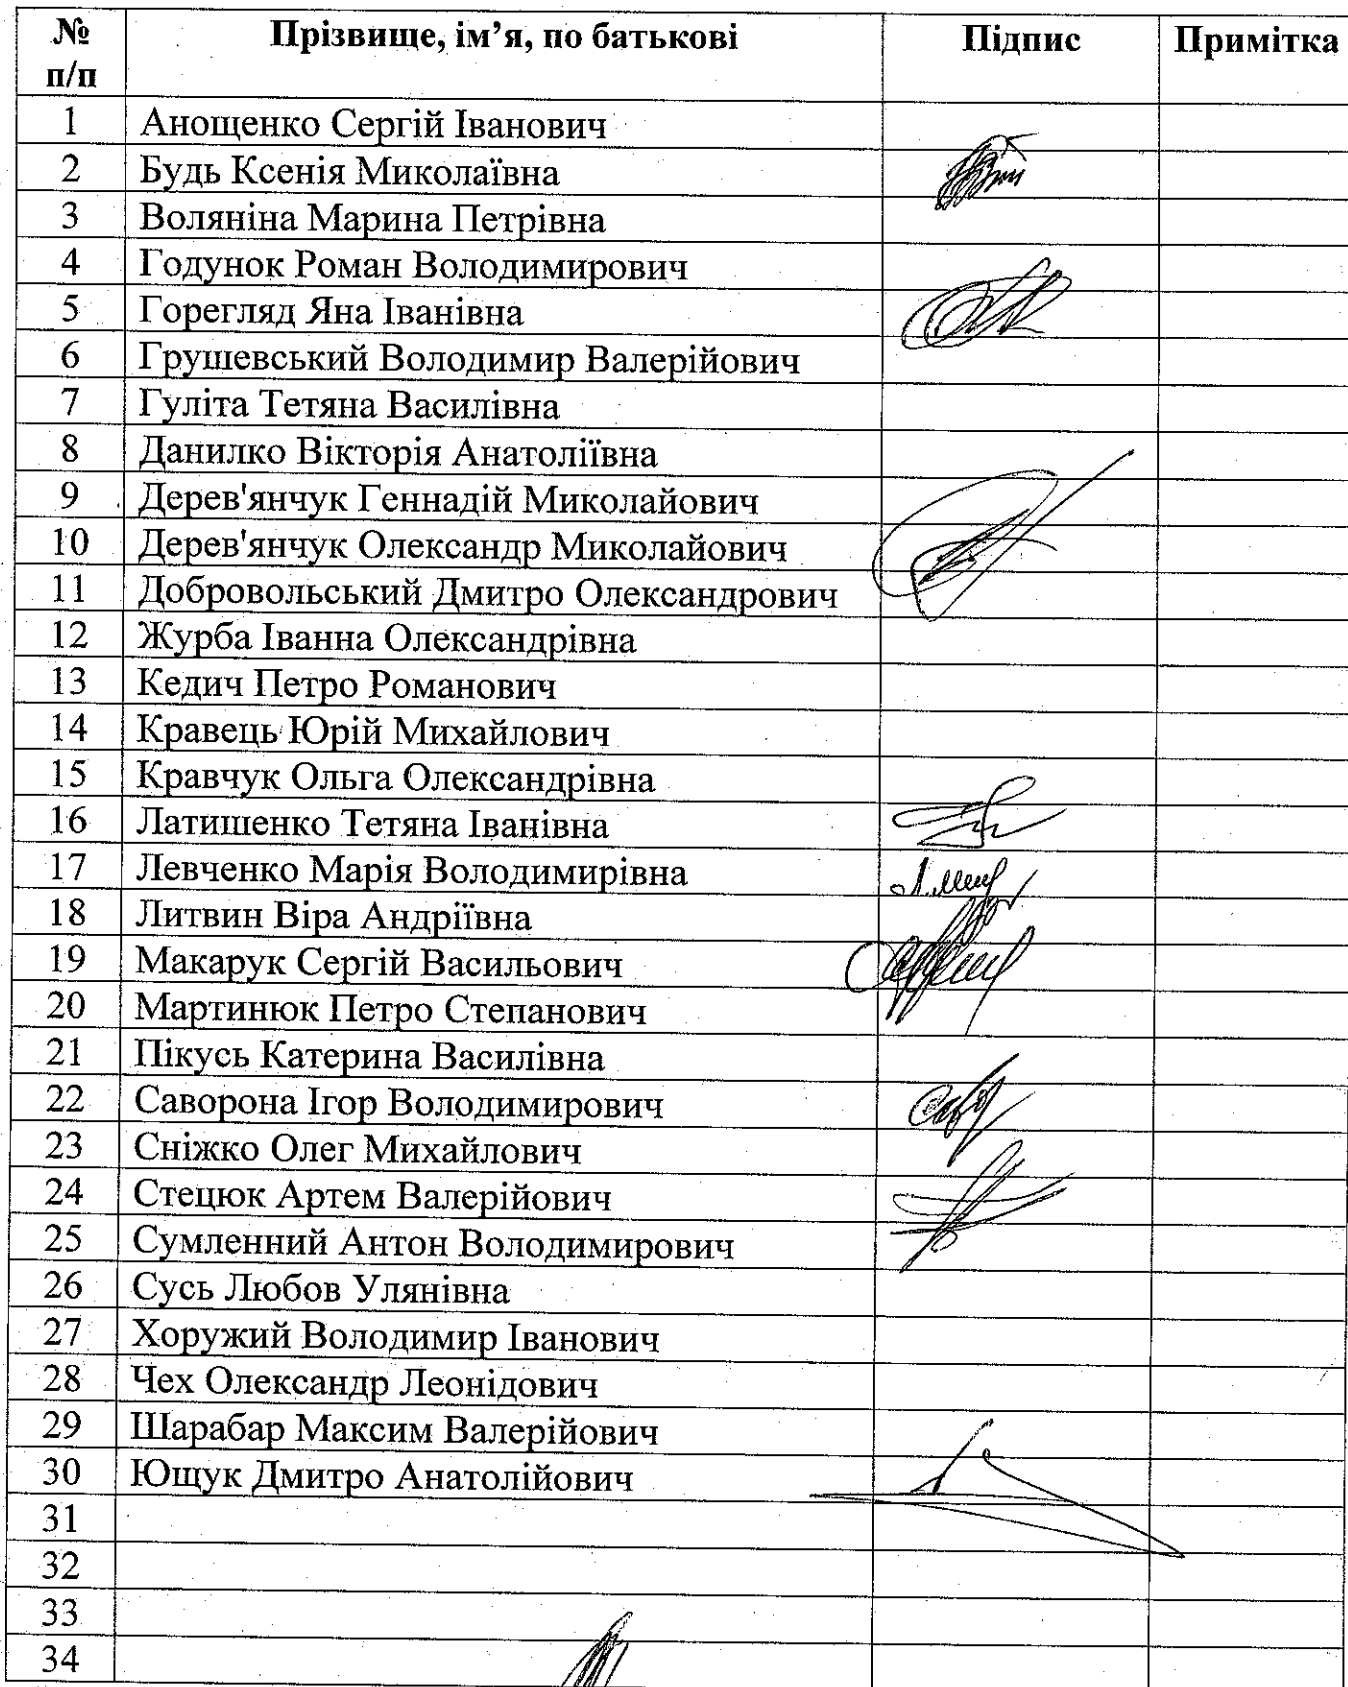 № п/п Прізвище, ім’я, по батькові Підпис Примітка
1 Анощенко Сергій Іванович
2 Будь Ксенія Миколаївна
3 Воляніна Марина Петрівна
4 Годунок Роман Володимирович
5 Горегляд Яна Іванівна
6 Грушевський Володимир Валерійович
7 Гуліта Тетяна Василівна
8 Данилко Вікторія Анатоліївна
9 Дерев'янчук Геннадій Миколайович
10 Дерев'янчук Олександр Миколайович
11 Добровольський Дмитро Олександрович
12 Журба Іванна Олександрівна
13 Кедич Петро Романович
14 Кравець Юрій Михайлович
15 Кравчук Ольга Олександрівна
16 Латишенко Тетяна Іванівна
17 Левченко Марія Володимирівна
18 Литвин Віра Андріївна
19 Макарук Сергій Васильович
20 Мартинюк Петро Степанович
21 Пікусь Катерина Василівна
22 Саворона Ігор Володимирович
23 Сніжко Олег Михайлович
24 Стецюк Артем Валерійович
25 Сумленний Антон Володимирович
26 Сусь Любов Улянівна
27 Хоружий Володимир Іванович
28 Чех Олександр Леонідович
29 Шарабар Максим Валерійович
30 Ющук Дмитро Анатолійович
31
32
33
34